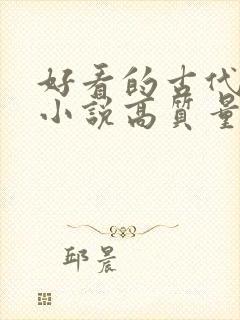 好看的古代
小说高质量
邱晨